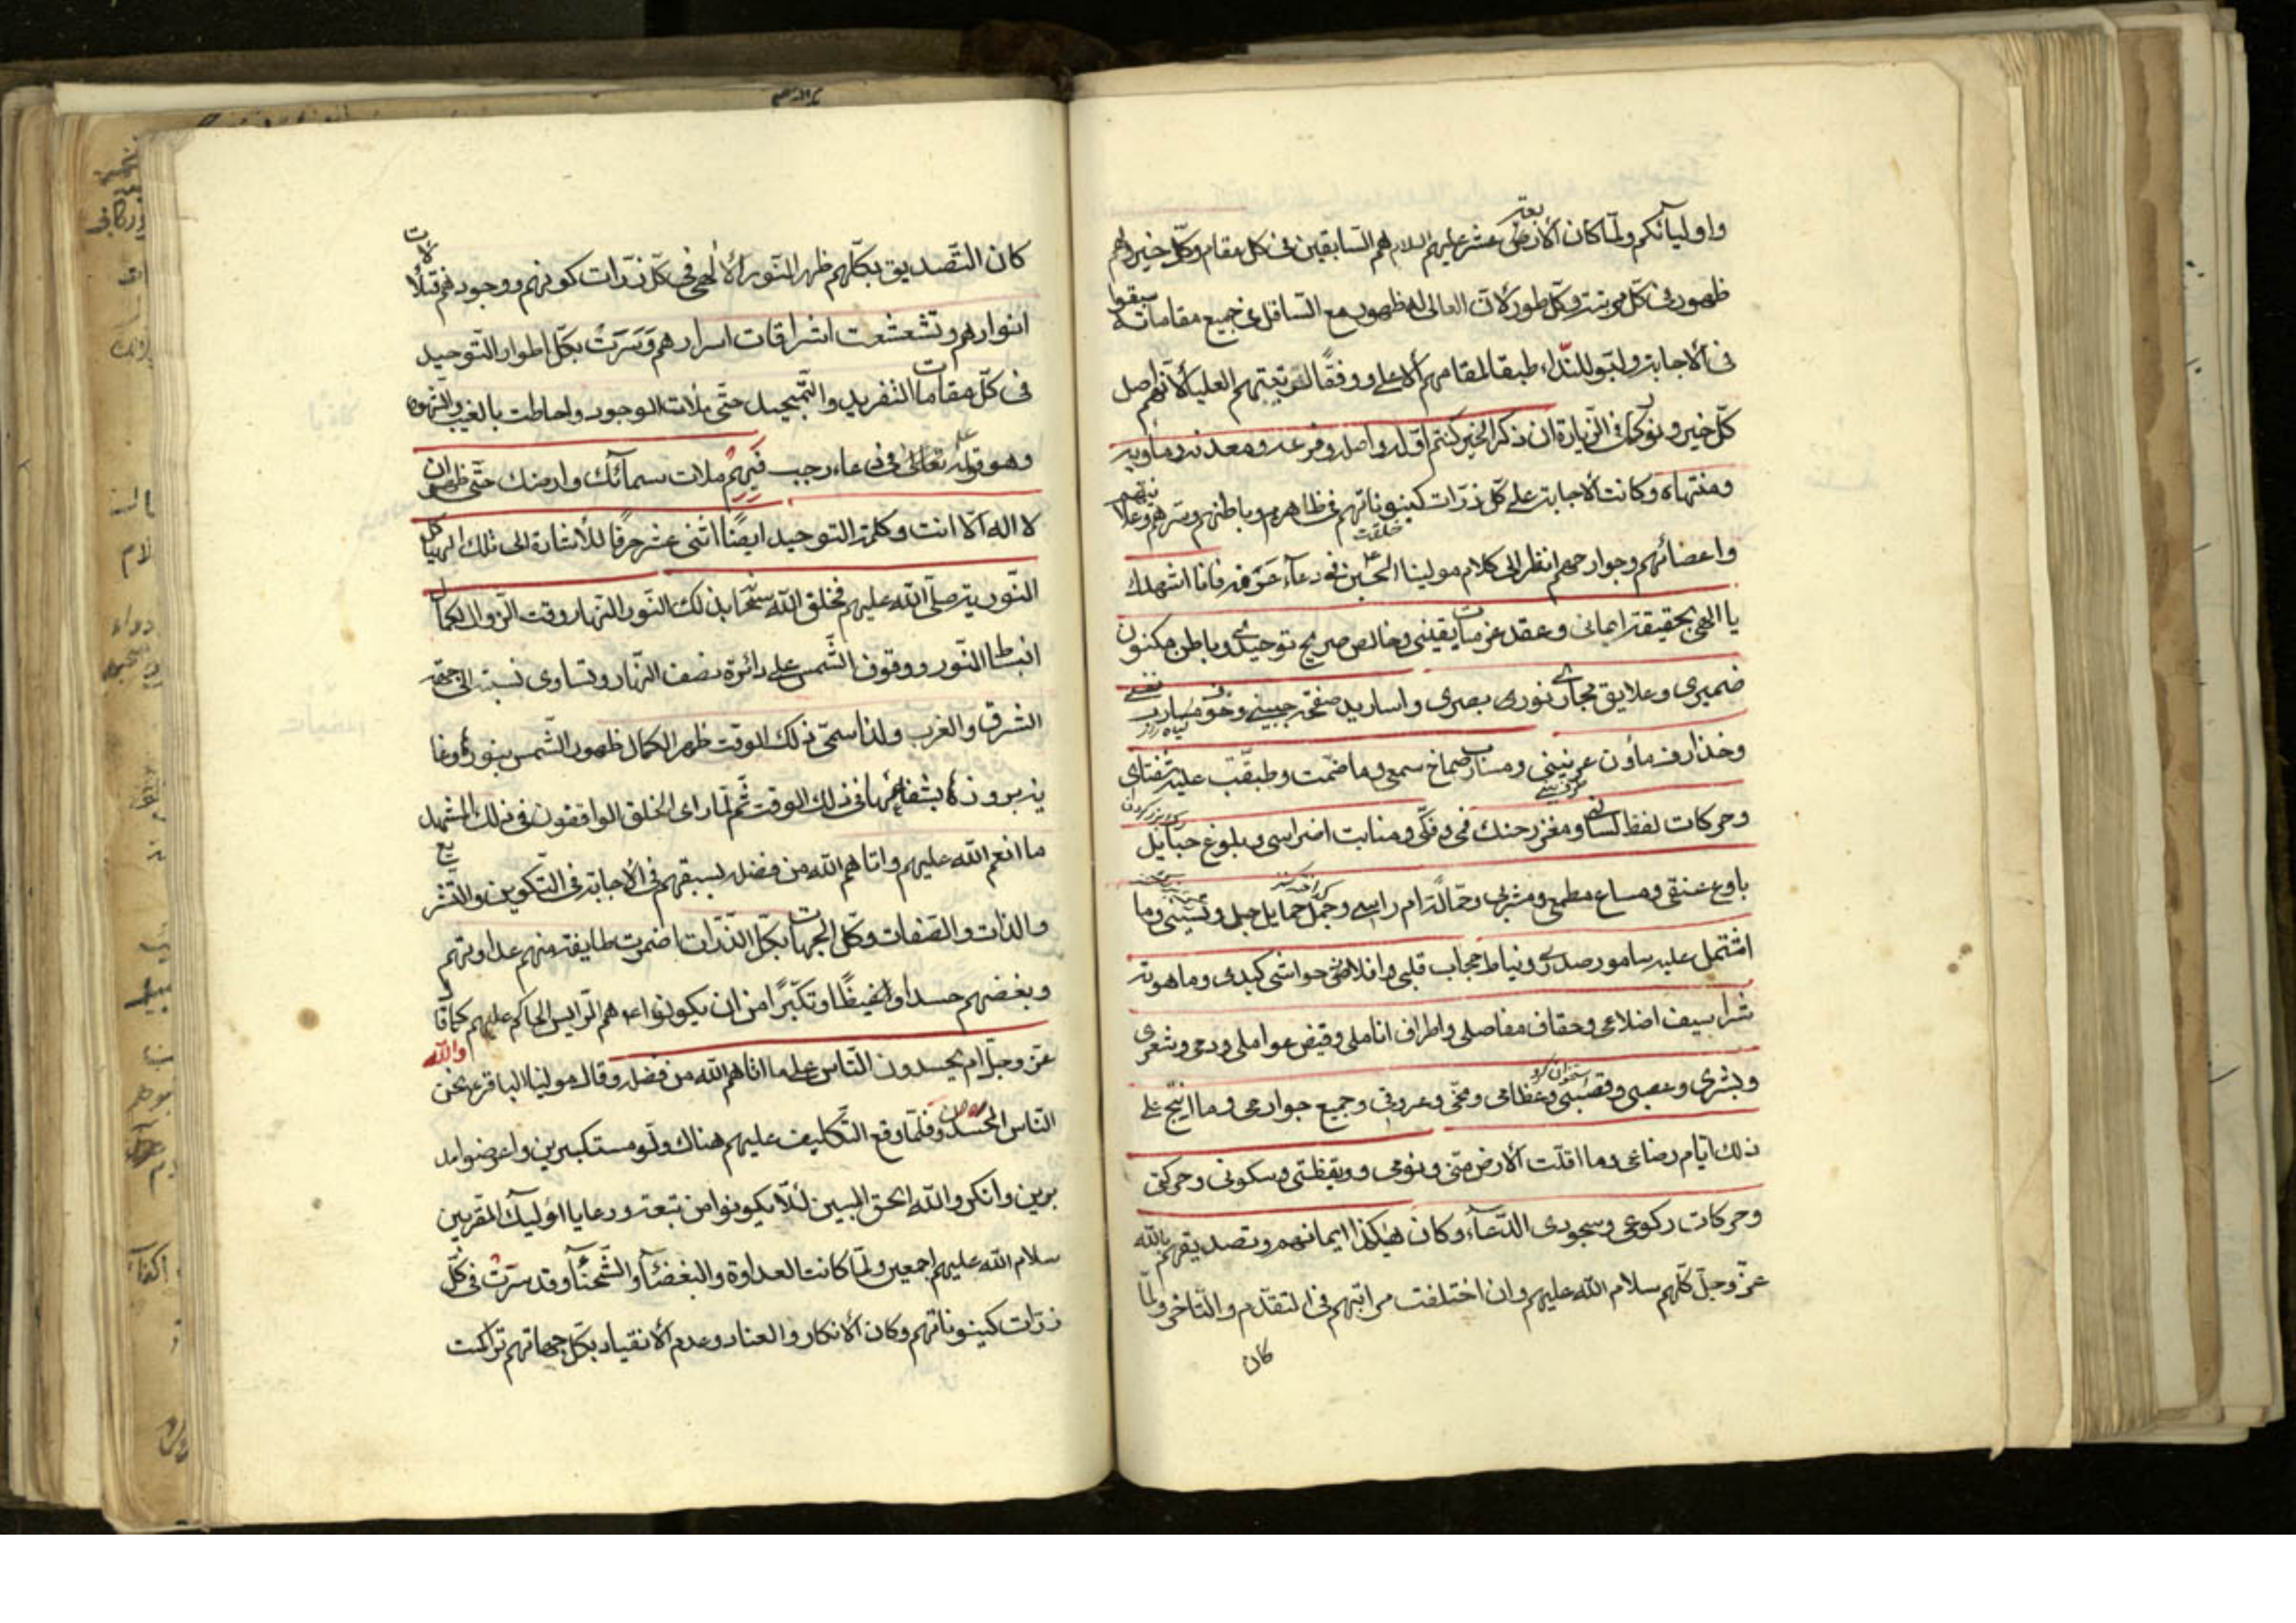 واوليائكم ولما كان الاربعة عشر عليهم السلام هم السابقين فى كل مقام وكل خير ولهم
ظهور فى كل مرتبة وكل طور لان العالى له ظهور مع السافل فى جميع مقاماته سبقوا
فى الاجابة ولبّو للنّداء طبقا لمقامهم الاعلى ووفقًا لمرتبتهم العليا لأنهم اصل
كلّ خير ونور كما فى الزيارة ان ذكر الخير كنتم اوّله واصله وفرعه ومعدنه ومأويه
ومنتهاه وكانت الاجابة على كل ذرّات كينوناتهم فى ظاهرهم وباطنهم وسرهم وعلانيتهم
واعضائهم وجوارحهم انظر الى كلام مولينا الحسين ع فى دعاء عرفه فانا اشهدك
يا الهى بحقيقة ايمانى وعقد عزمات يقينى وخالص صريح توحيدى وباطن مكنون
ضميرى وعلايق مجارى نور بصرى واسارير صفحة جبينى وخرق مسارب نفسى
وخذاريف مأرن عرنينى ومسارب صماخ سمعى وما ضمّت وطبقت عليه شفتاى
وحركات لفظ لسانى ومغرز حنك فمى وفكّى ومنابت اضراسى وبلوغ حبايل
باوع عنقى ومساغ مطعمى ومشربى وحمّالة ام راسى وجمل حمايل حبل وتينى وما
اشتمل عليه تامور صدرى ونياط حجاب قلبى وافلاذ حواشى كبدى وما حوته
شراسيف اضلاعى وحقاف مفاصلى واطراف اناملى وقبض عواملى ودمى وشعرى
وبشرى وعصبى وقصبى وعظامى ومخّى وعروقى وجميع جوارحى وما انتسج على
ذلك ايام رضاعى وما اقلّت الأرض منّى ونومى ويقظتى وسكونى وحركتى
وحركات ركوعى وسجودى الدّعاء وكان هيكذا ايمانهم وتصديقهم بالله
عزّ وجلّ كلّهم سلام الله عليهم وان اختلفت مراتبهم فى التقدّم والتّاخر ولمّا
كان
كان التّصديق بكلّهم ظهر النّور الألهى فى كلّ ذرّات كونهم ووجودهم فتلألأت
انوارهم وتشعشعت اشراقات اسرارهم وَسَرَتْ بكلّ اطوار التّوحيد
فى كلّ مقامات التّفريد والتّمجيد حتّى ملأت الوجود واحاطت بالغيب والشهود
وهو قوله تعالى فى دعاء رجب فبِهم ملأت سمآئك وارضك حتّى ظهر ان
لا اله الّا انت وكلمة التوحيد ايضًا اثنى عشر حرفًا للأشارة الى تلك الهياكل
النّورية صلّى الله عليهم فخلق الله سبحانه بذلك النّور النّهار وقت الزّوال لكمال
انبساط النّور ووقوف الشّمس على دائرة نصف النّهار وتساوى نسبته الى جهة
الشرق والغرب ولذا سمّى ذلك الوقت ظهر الكمال ظهور الشّمس بنورها وغا
ية بروزها بشعاعها فى ذلك الوقت ثم لمّا راى الخلق الواقفون فى ذلك المشهد
ما انعم الله عليهم واتاهم الله من فضله بسبقهم فى الأجابة فى التّكوين والتشريع
والذات والصّفات وكلّ الجهات بكلّ الذّرّات اضمرت طايفة منهم عداوتهم
وبغضهم حسدا وغيظًا وتكبّرًا من ان يكونوا هم الرّئيس الحاكم عليهم كما قال
عزّ وجلّ ام يحسدون النّاس على ما اتاهم الله من فضله وقال مولينا الباقر ع نحن والله
النّاس المحسودون فلمّا وقع التّكليف عليهم هناك ولّو مستكبرين واعرضوا مد
برين وانكروا الله الحق المبين لئلّا يكونوا من تبعة ورعايا اولئك المقربين
سلام الله عليهم اجمعين ولمّا كانت العداوة والبغضآء والشّحنآء وقد سرَتْ فى كلّ
ذرّات كينوناتهم وكان الانكار والعناد وعدم الانقياد بكلّ جهاتهم تراكمت